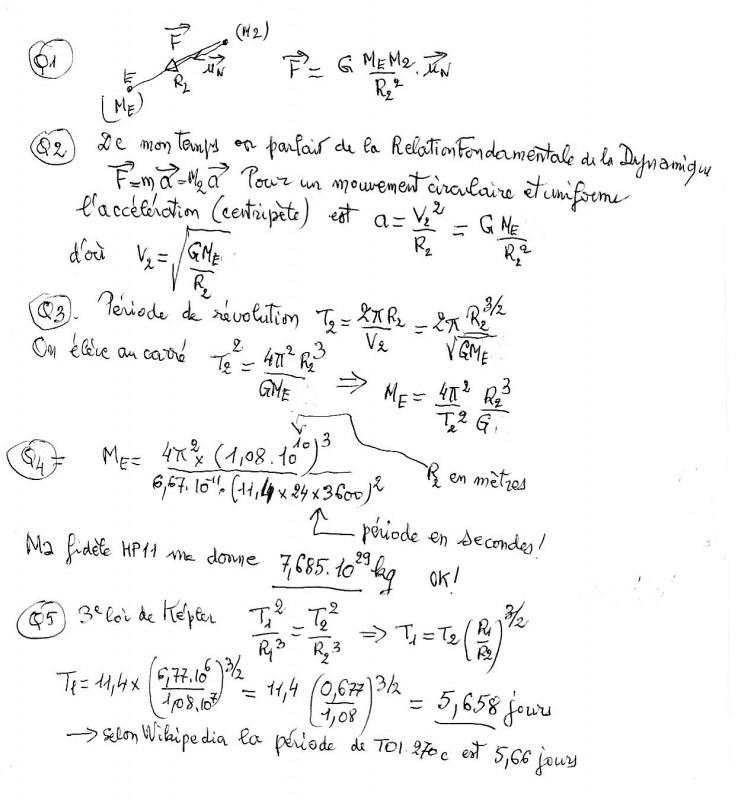 Q1 F⃗ (M2) E R2 u⃗N (ME) F⃗ = G ME M2 / R2² . u⃗N
Q2 De mon temps on parlait de la Relation Fondamentale de la Dynamique
F⃗ = m a⃗ = M2 a⃗ Pour un mouvement circulaire et uniforme
l'accélération (centripète) est a = V2² / R2 = G ME / R2²
d'où V2 = √(GME / R2)
Q3. Période de révolution T2 = 2πR2 / V2 = 2π R2^3/2 / √GME
On élève au carré T2² = 4π² R2³ / GME ⇒ ME = 4π² / T2² R2³ / G
Q4 = ME = 4π² × (1,08.10^10)³ / 6,67.10^-11 . (11,4 × 24 × 3600)²
R2 en mètres
période en secondes !
Ma fidèle HP11 me donne 7,685.10^29 kg OK!
Q5 3e loi de Képler T1² / R1³ = T2² / R2³ ⇒ T1 = T2 (R1 / R2)^3/2
T1 = 11,4 × (6,77.10^6 / 1,08.10^7)^3/2 = 11,4 (0,677 / 1,08)^3/2 = 5,658 jours
→ selon Wikipedia la période de TOI.270c est 5,66 jours